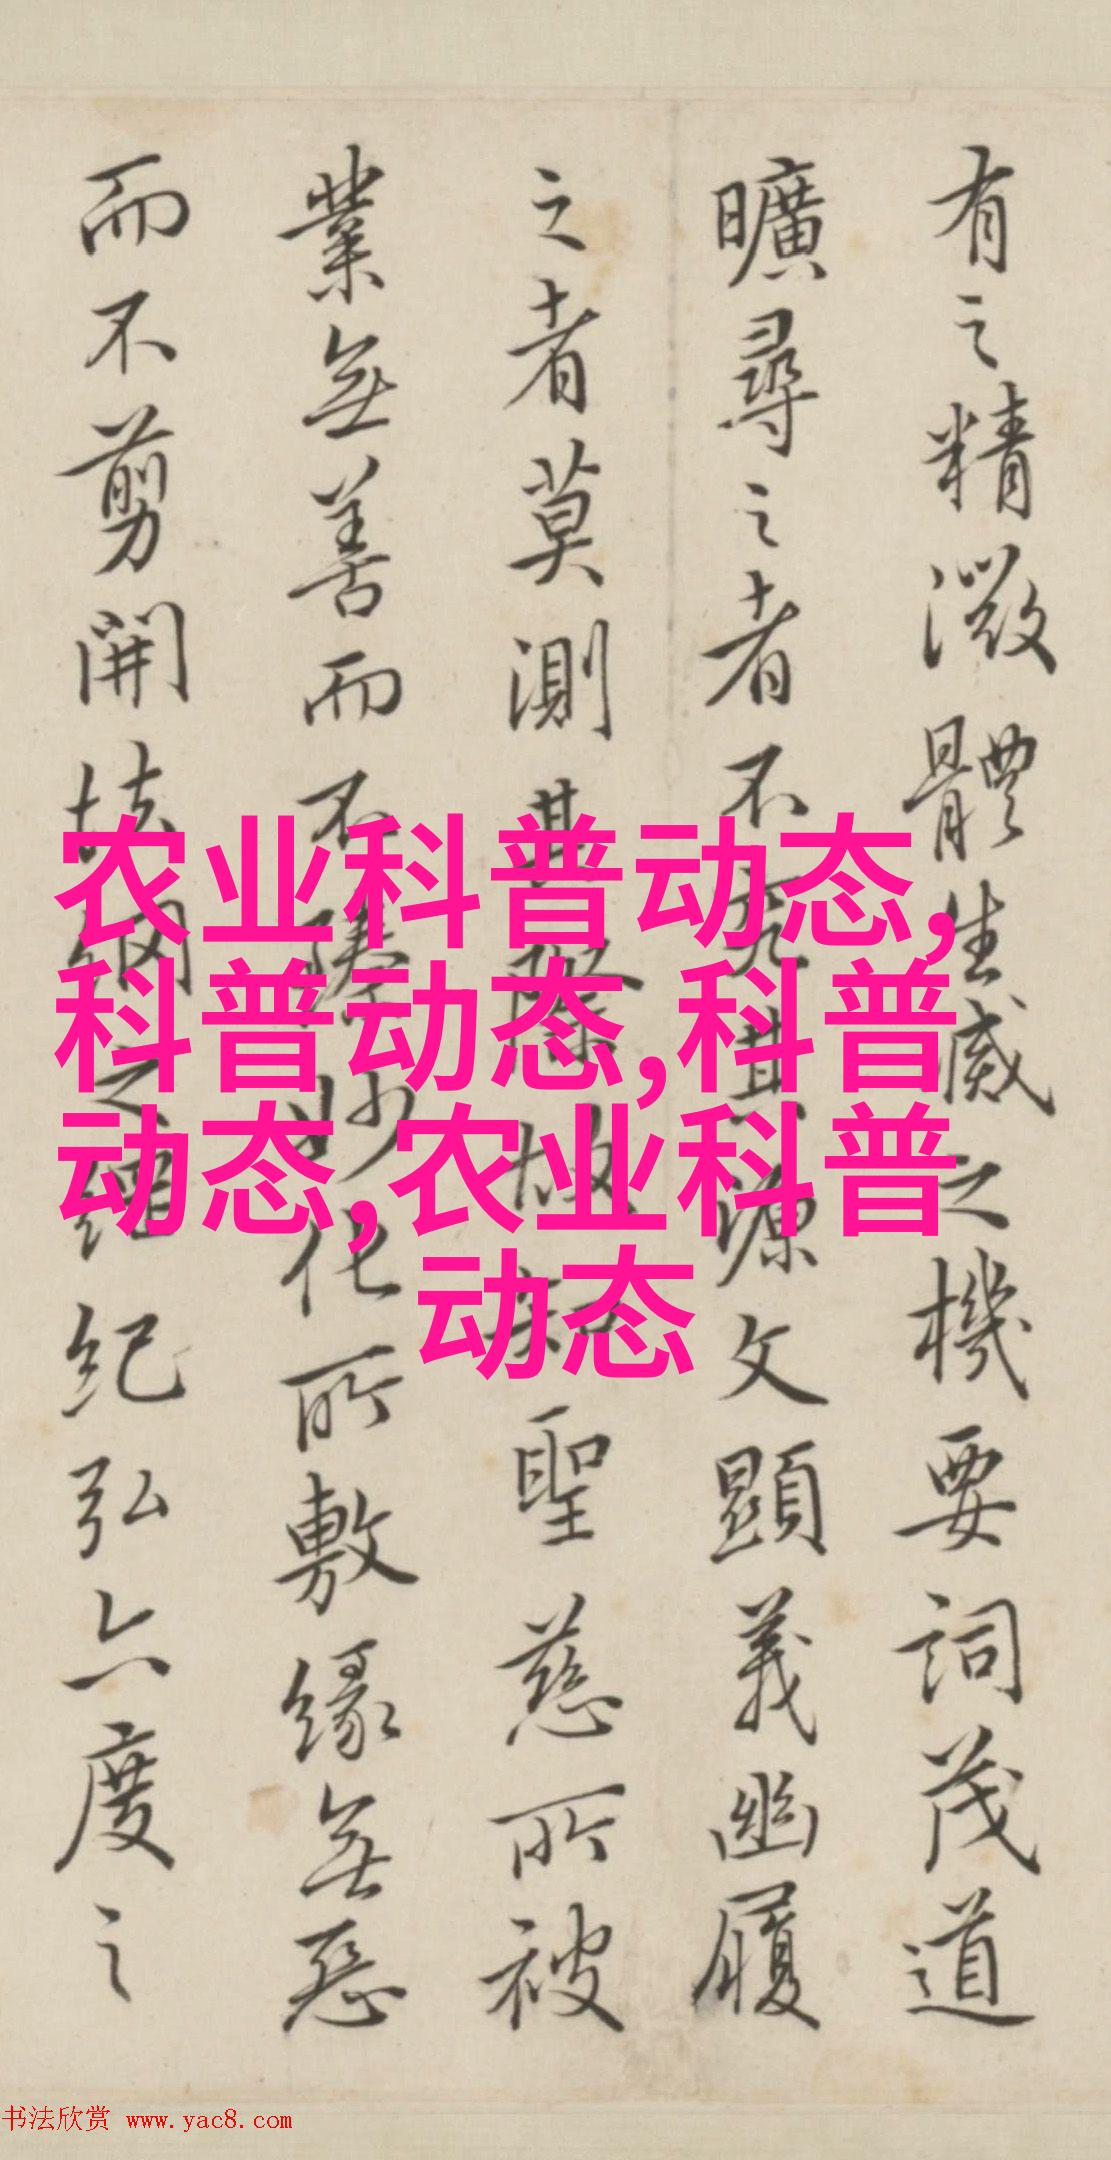 有之精微體生滅之機要詞茂道
曠尋之者不究其源文顯義幽履
之者莫測其際故知聖慈所被
業無善而不臻妙化所敷緣無惡
而不剪開法網之綱紀弘六度之
农业科普动态,
科普动态,科普
动态,农业科普
动态
书法欣赏 www.yac8.com